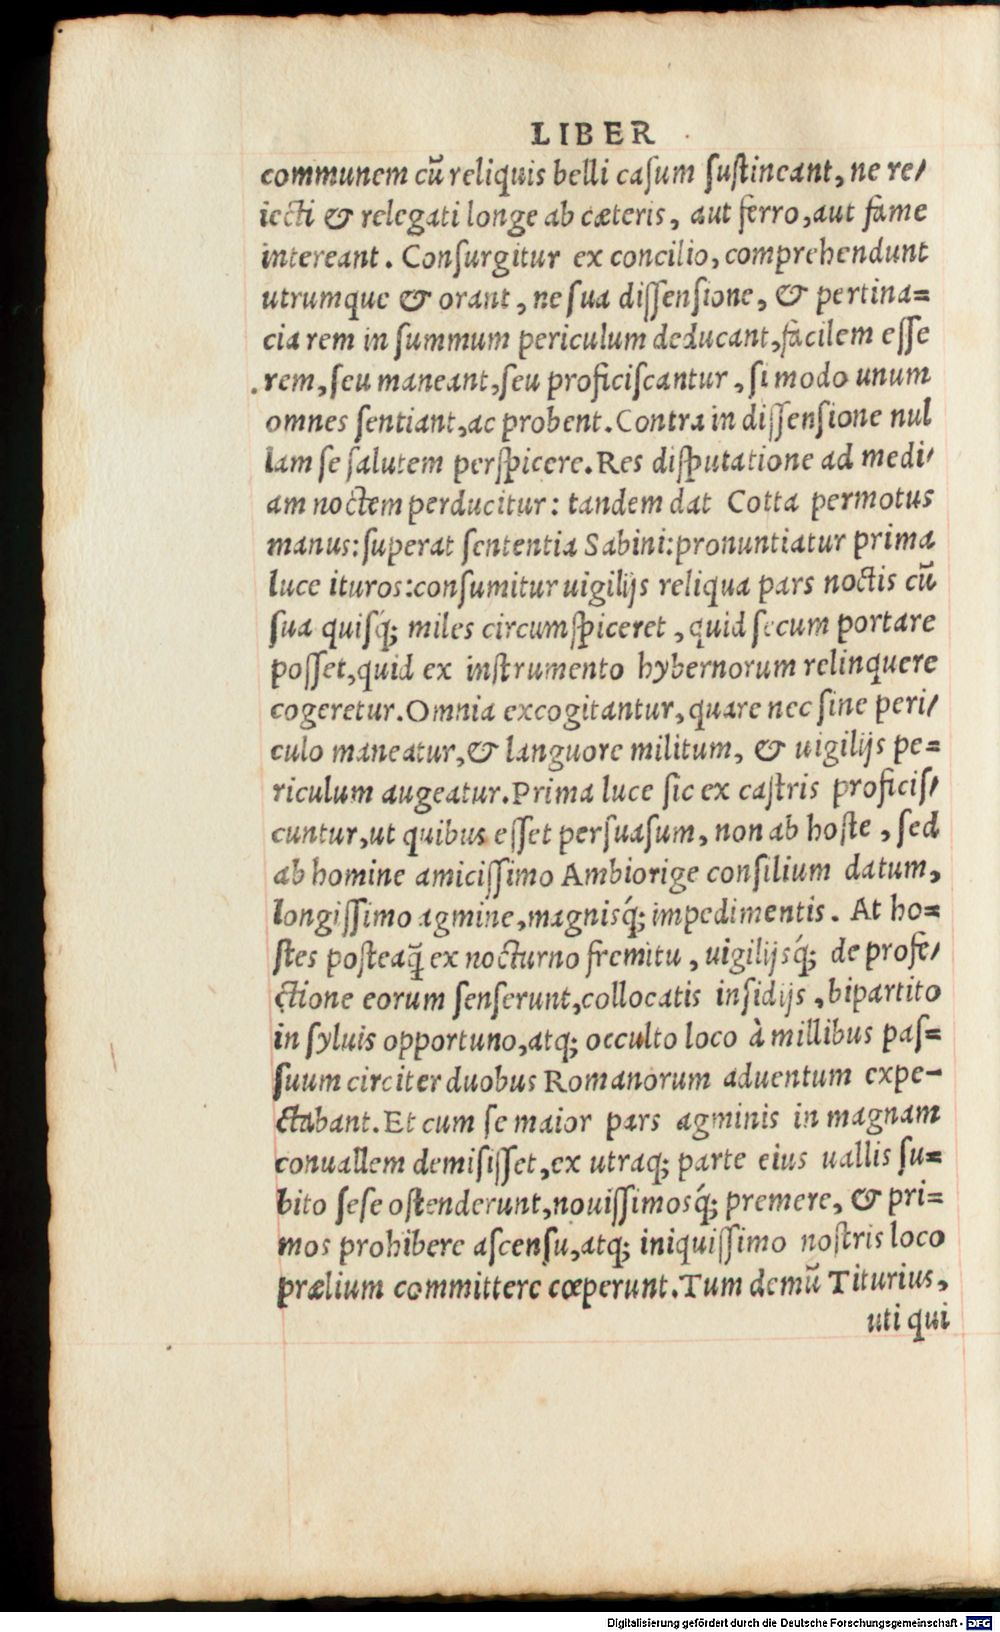 LIBER
communem cũ reliquis belli casum sustineant, ne re/
iecti & relegati longe ab cæteris, aut ferro, aut fame
intereant. Consurgitur ex concilio, comprehendunt
utrumque & orant, ne sua dissensione, & pertina=
cia rem in summum periculum deducant, facilem esse
rem, seu maneant, seu proficiscantur, si modo unum
omnes sentiant, ac probent. Contra in dissensione nul
lam se salutem perspicere. Res disputatione ad medi/
am noctem perducitur: tandem dat Cotta permotus
manus: superat sententia Sabini: pronuntiatur prima
luce ituros: consumitur uigilijs reliqua pars noctis cũ
sua quisq́; miles circumspiceret, quid secum portare
posset, quid ex instrumento hybernorum relinquere
cogeretur. Omnia excogitantur, quare nec sine peri/
culo maneatur, & languore militum, & uigilijs pe=
riculum augeatur. Prima luce sic ex castris proficis/
cuntur, ut quibus esset persuasum, non ab hoste, sed
ab homine amicissimo Ambiorige consilium datum,
longissimo agmine, magnisq́; impedimentis. At ho=
stes posteaq̃ ex nocturno fremitu, uigilijsq́; de profe/
ctione eorum senserunt, collocatis insidijs, bipartito
in syluis opportuno, atq; occulto loco à millibus pas=
suum circiter duobus Romanorum aduentum expe-
ctabant. Et cum se maior pars agminis in magnam
conuallem demisisset, ex utraq; parte eius uallis su=
bito sese ostenderunt, nouissimosq́; premere, & pri=
mos prohibere ascensu, atq; iniquissimo nostris loco
prælium committere cœperunt. Tum demũ Titurius,
uti qui
Digitalisierung gefördert durch die Deutsche Forschungsgemeinschaft - DFG